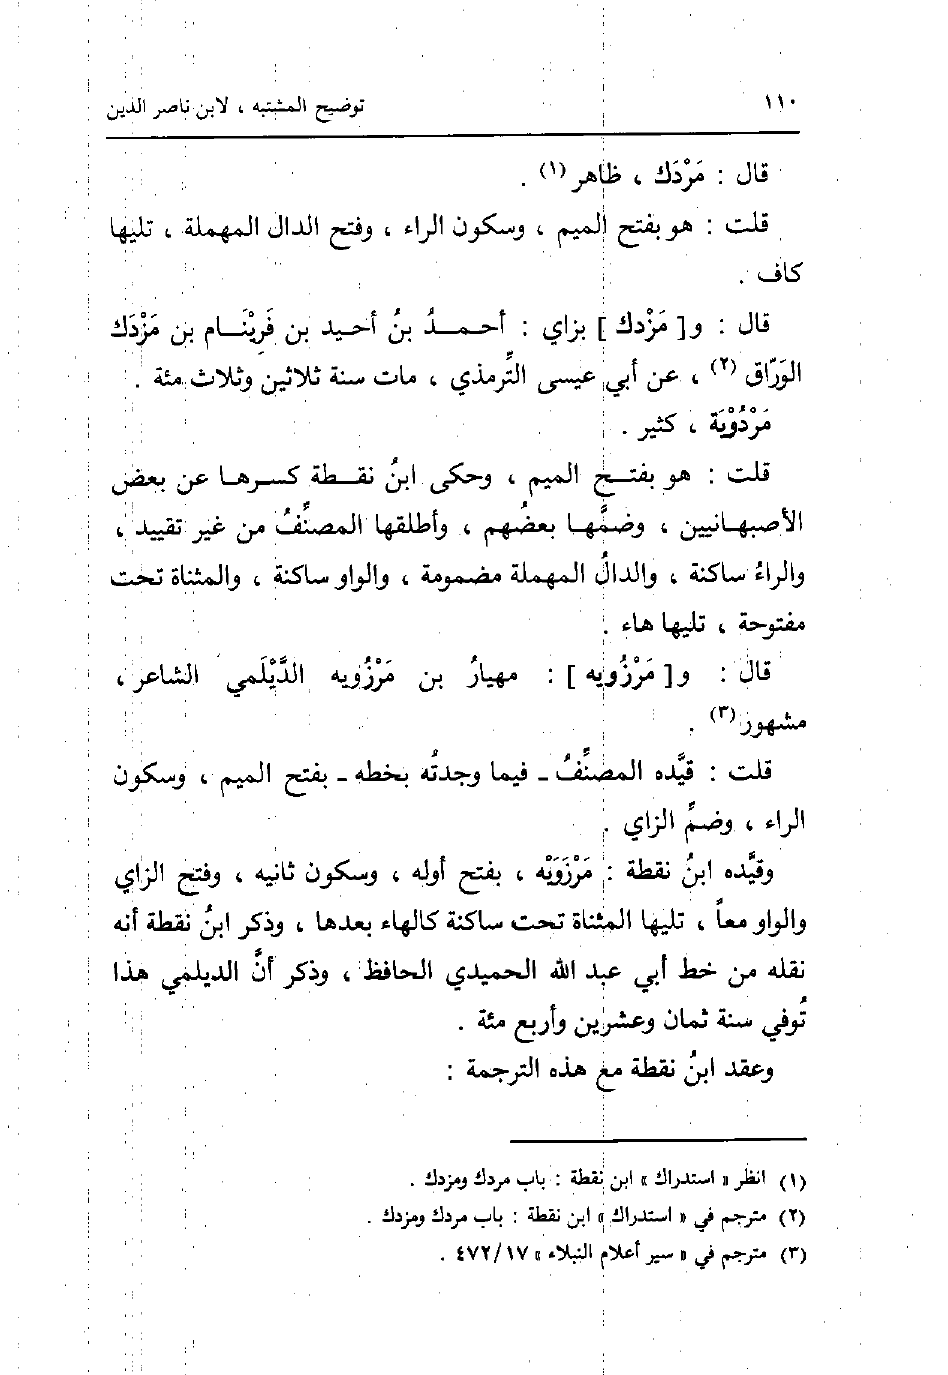 ١١٠ توضيح المشتبه ، لابن ناصر الدين
قال : مَرْدَك ، ظاهر (١) .
قلت : هو بفتح الميم ، وسكون الراء ، وفتح الدال المهملة ، تليها
كاف .
قال : و[ مَزْدك ] بزاي : أحمدُ بنُ أحيد بن فَرِيْنَام بن مَزْدَك
الوَرّاق (٢) ، عن أبي عيسى التِّرمذي ، مات سنة ثلاثين وثلاث مئة .
مَرْدُوْيَة ، كثير .
قلت : هو بفتح الميم ، وحكى ابنُ نقطة كسرها عن بعض
الأصبهانيين ، وضمَّها بعضُهم ، وأطلقها المصنِّفُ من غير تقييد ،
والراءُ ساكنة ، والدالُ المهملة مضمومة ، والواو ساكنة ، والمثناة تحت
مفتوحة ، تليها هاء .
قال : و[ مَرْزُويه ] : مهيارُ بن مَرْزُويه الدَّيْلَمي الشاعر ،
مشهور (٣) .
قلت : قيَّده المصنِّفُ - فيما وجدتُه بخطه - بفتح الميم ، وسكون
الراء ، وضمِّ الزاي .
وقيَّده ابنُ نقطة : مَرْزَوَيْه ، بفتح أوله ، وسكون ثانيه ، وفتح الزاي
والواو معاً ، تليها المثناة تحت ساكنة كالهاء بعدها ، وذكر ابنُ نقطة أنه
نقله من خط أبي عبد الله الحميدي الحافظ ، وذكر أنَّ الديلمي هذا
تُوفي سنة ثمان وعشرين وأربع مئة .
وعقد ابنُ نقطة مع هذه الترجمة :
(١) انظر « استدراك » ابن نقطة : باب مردك ومزدك .
(٢) مترجم في « استدراك » ابن نقطة : باب مردك ومزدك .
(٣) مترجم في « سير أعلام النبلاء » ٤٧٢/١٧ .